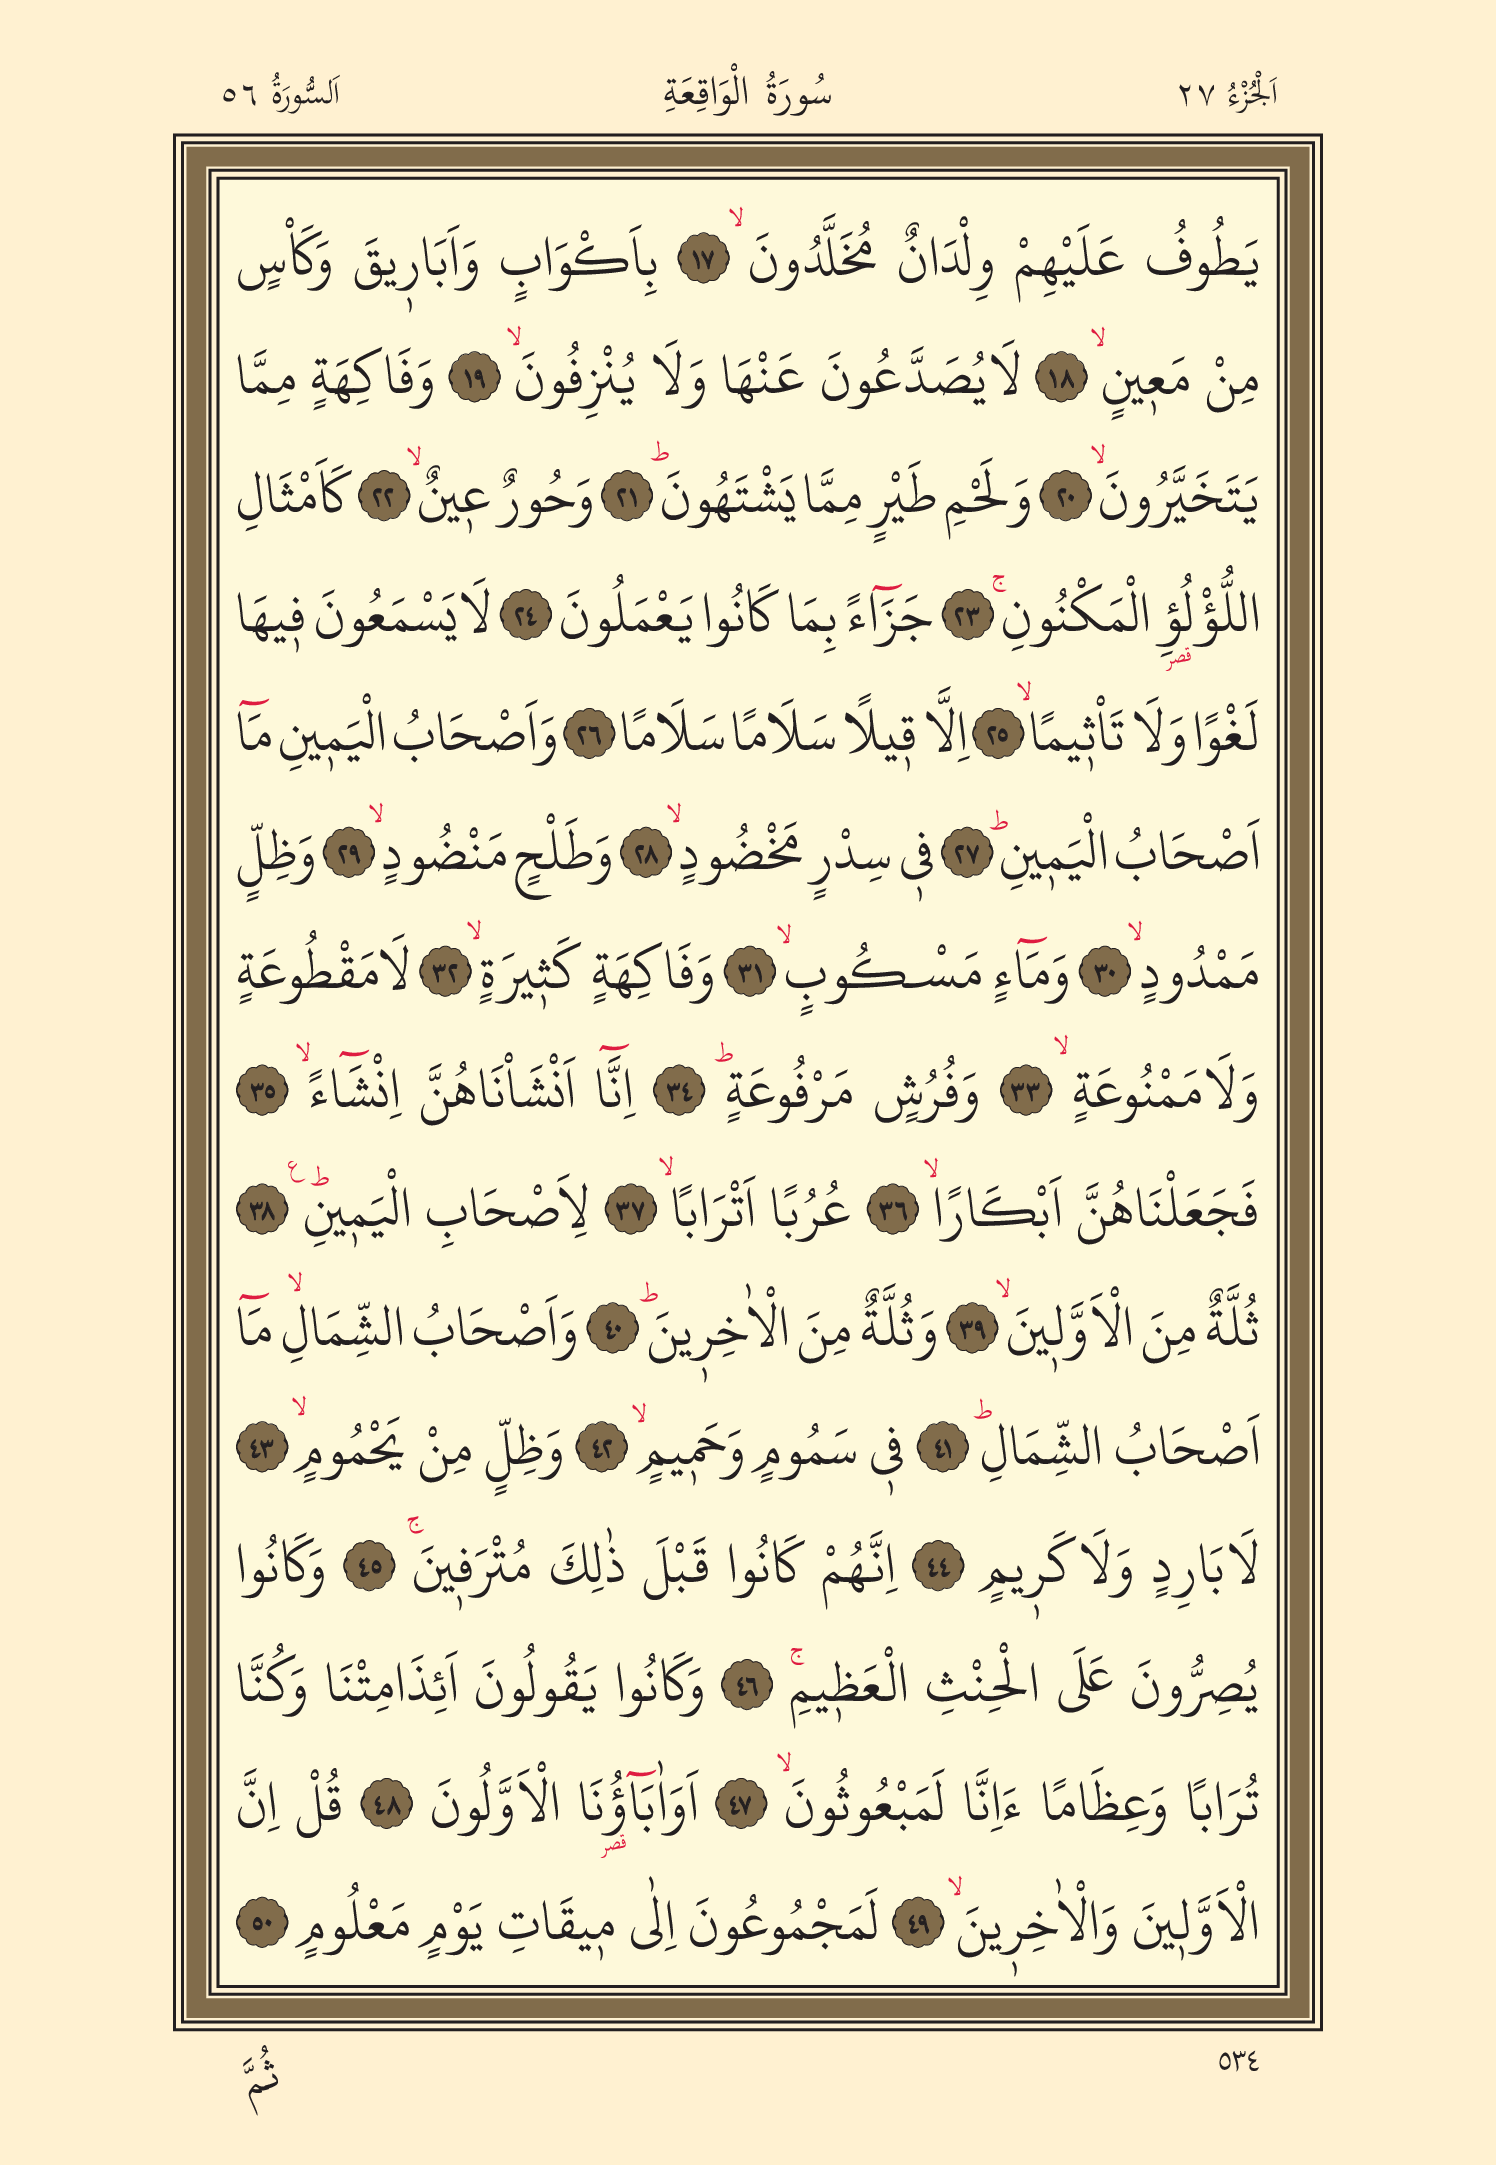 اَلْجُزْءُ ٢٧
سُورَةُ الْوَاقِعَةِ
اَلسُّورَةُ ٥٦
يَطُوفُ عَلَيْهِمْ وِلْدَانٌ مُخَلَّدُونَۙ ﴿١٧﴾ بِاَكْوَابٍ وَاَبَار۪يقَ وَكَاْسٍ
مِنْ مَع۪ينٍۙ ﴿١٨﴾ لَا يُصَدَّعُونَ عَنْهَا وَلَا يُنْزِفُونَۙ ﴿١٩﴾ وَفَاكِهَةٍ مِمَّا
يَتَخَيَّرُونَۙ ﴿٢٠﴾ وَلَحْمِ طَيْرٍ مِمَّا يَشْتَهُونَۜ ﴿٢١﴾ وَحُورٌ ع۪ينٌۙ ﴿٢٢﴾ كَاَمْثَالِ
اللُّؤْلُؤِ الْمَكْنُونِۚ ﴿٢٣﴾ جَزَٓاءً بِمَا كَانُوا يَعْمَلُونَ ﴿٢٤﴾ لَا يَسْمَعُونَ ف۪يهَا
قصر
لَغْوًا وَلَا تَاْث۪يمًاۙ ﴿٢٥﴾ اِلَّا ق۪يلًا سَلَامًا سَلَامًا ﴿٢٦﴾ وَاَصْحَابُ الْيَم۪ينِ مَٓا
اَصْحَابُ الْيَم۪ينِۜ ﴿٢٧﴾ ف۪ي سِدْرٍ مَخْضُودٍۙ ﴿٢٨﴾ وَطَلْحٍ مَنْضُودٍۙ ﴿٢٩﴾ وَظِلٍّ
مَمْدُودٍۙ ﴿٣٠﴾ وَمَٓاءٍ مَسْكُوبٍۙ ﴿٣١﴾ وَفَاكِهَةٍ كَث۪يرَةٍۙ ﴿٣٢﴾ لَا مَقْطُوعَةٍ
وَلَا مَمْنُوعَةٍۙ ﴿٣٣﴾ وَفُرُشٍ مَرْفُوعَةٍۜ ﴿٣٤﴾ اِنَّٓا اَنْشَاْنَاهُنَّ اِنْشَٓاءًۙ ﴿٣٥﴾
فَجَعَلْنَاهُنَّ اَبْكَارًاۙ ﴿٣٦﴾ عُرُبًا اَتْرَابًاۙ ﴿٣٧﴾ لِاَصْحَابِ الْيَم۪ينِۜ ع ﴿٣٨﴾
ثُلَّةٌ مِنَ الْاَوَّل۪ينَۙ ﴿٣٩﴾ وَثُلَّةٌ مِنَ الْاٰخِر۪ينَۜ ﴿٤٠﴾ وَاَصْحَابُ الشِّمَالِۙ مَٓا
اَصْحَابُ الشِّمَالِۜ ﴿٤١﴾ ف۪ي سَمُومٍ وَحَم۪يمٍۙ ﴿٤٢﴾ وَظِلٍّ مِنْ يَحْمُومٍۙ ﴿٤٣﴾
لَا بَارِدٍ وَلَا كَر۪يمٍ ﴿٤٤﴾ اِنَّهُمْ كَانُوا قَبْلَ ذٰلِكَ مُتْرَف۪ينَۚ ﴿٤٥﴾ وَكَانُوا
يُصِرُّونَ عَلَى الْحِنْثِ الْعَظ۪يمِۚ ﴿٤٦﴾ وَكَانُوا يَقُولُونَ اَئِذَا مِتْنَا وَكُنَّا
تُرَابًا وَعِظَامًا ءَاِنَّا لَمَبْعُوثُونَۙ ﴿٤٧﴾ اَوَاٰبَٓاؤُنَا الْاَوَّلُونَ ﴿٤٨﴾ قُلْ اِنَّ
قصر
الْاَوَّل۪ينَ وَالْاٰخِر۪ينَۙ ﴿٤٩﴾ لَمَجْمُوعُونَ اِلٰى م۪يقَاتِ يَوْمٍ مَعْلُومٍ ﴿٥٠﴾
٥٣٤
ثُمَّ